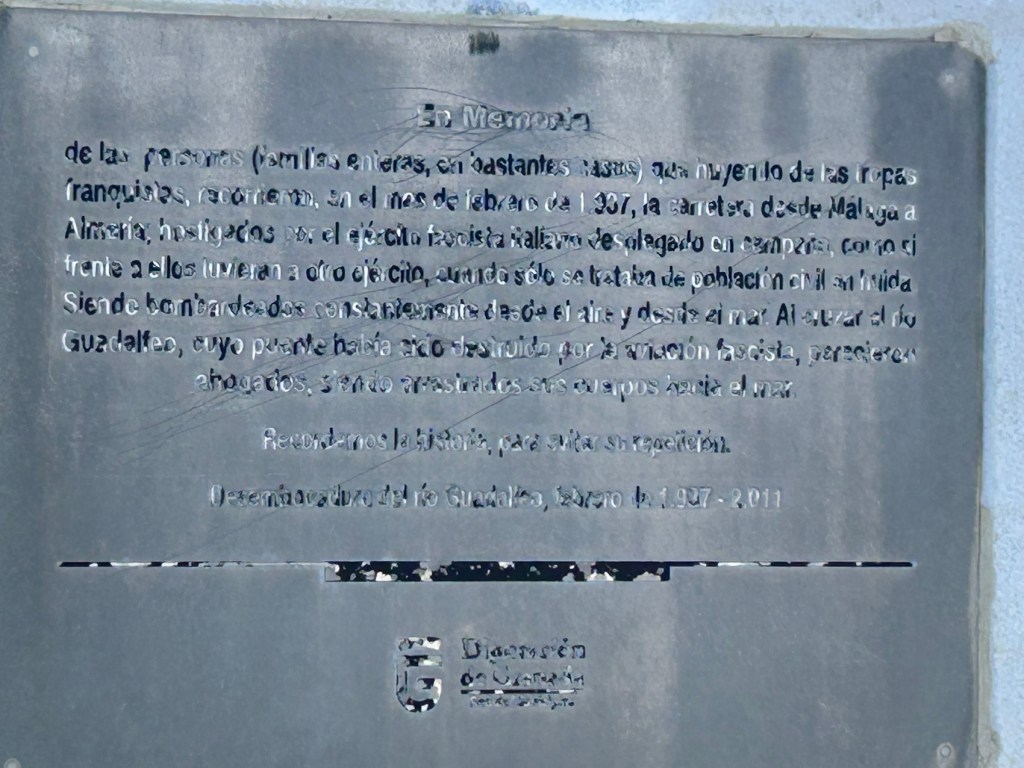 En Memoria
de las personas (familias enteras, en bastantes casos) que huyendo de las tropas
franquistas, recorrieron, en el mes de febrero de 1.937, la carretera desde Málaga a
Almería, hostigados por el ejército fascista italiano desplegado en campaña, como si
frente a ellos tuvieran a otro ejército, cuando sólo se trataba de población civil en huida
Siendo bombardeados constantemente desde el aire y desde el mar. Al cruzar el río
Guadalfeo, cuyo puente había sido destruido por la aviación fascista, perecieron
ahogados, siendo arrastrados sus cuerpos hacia el mar.
Recordemos la historia, para evitar su repetición.
Desembocadura del río Guadalfeo, febrero de 1.937 - 2.011
Diputación
de Granada